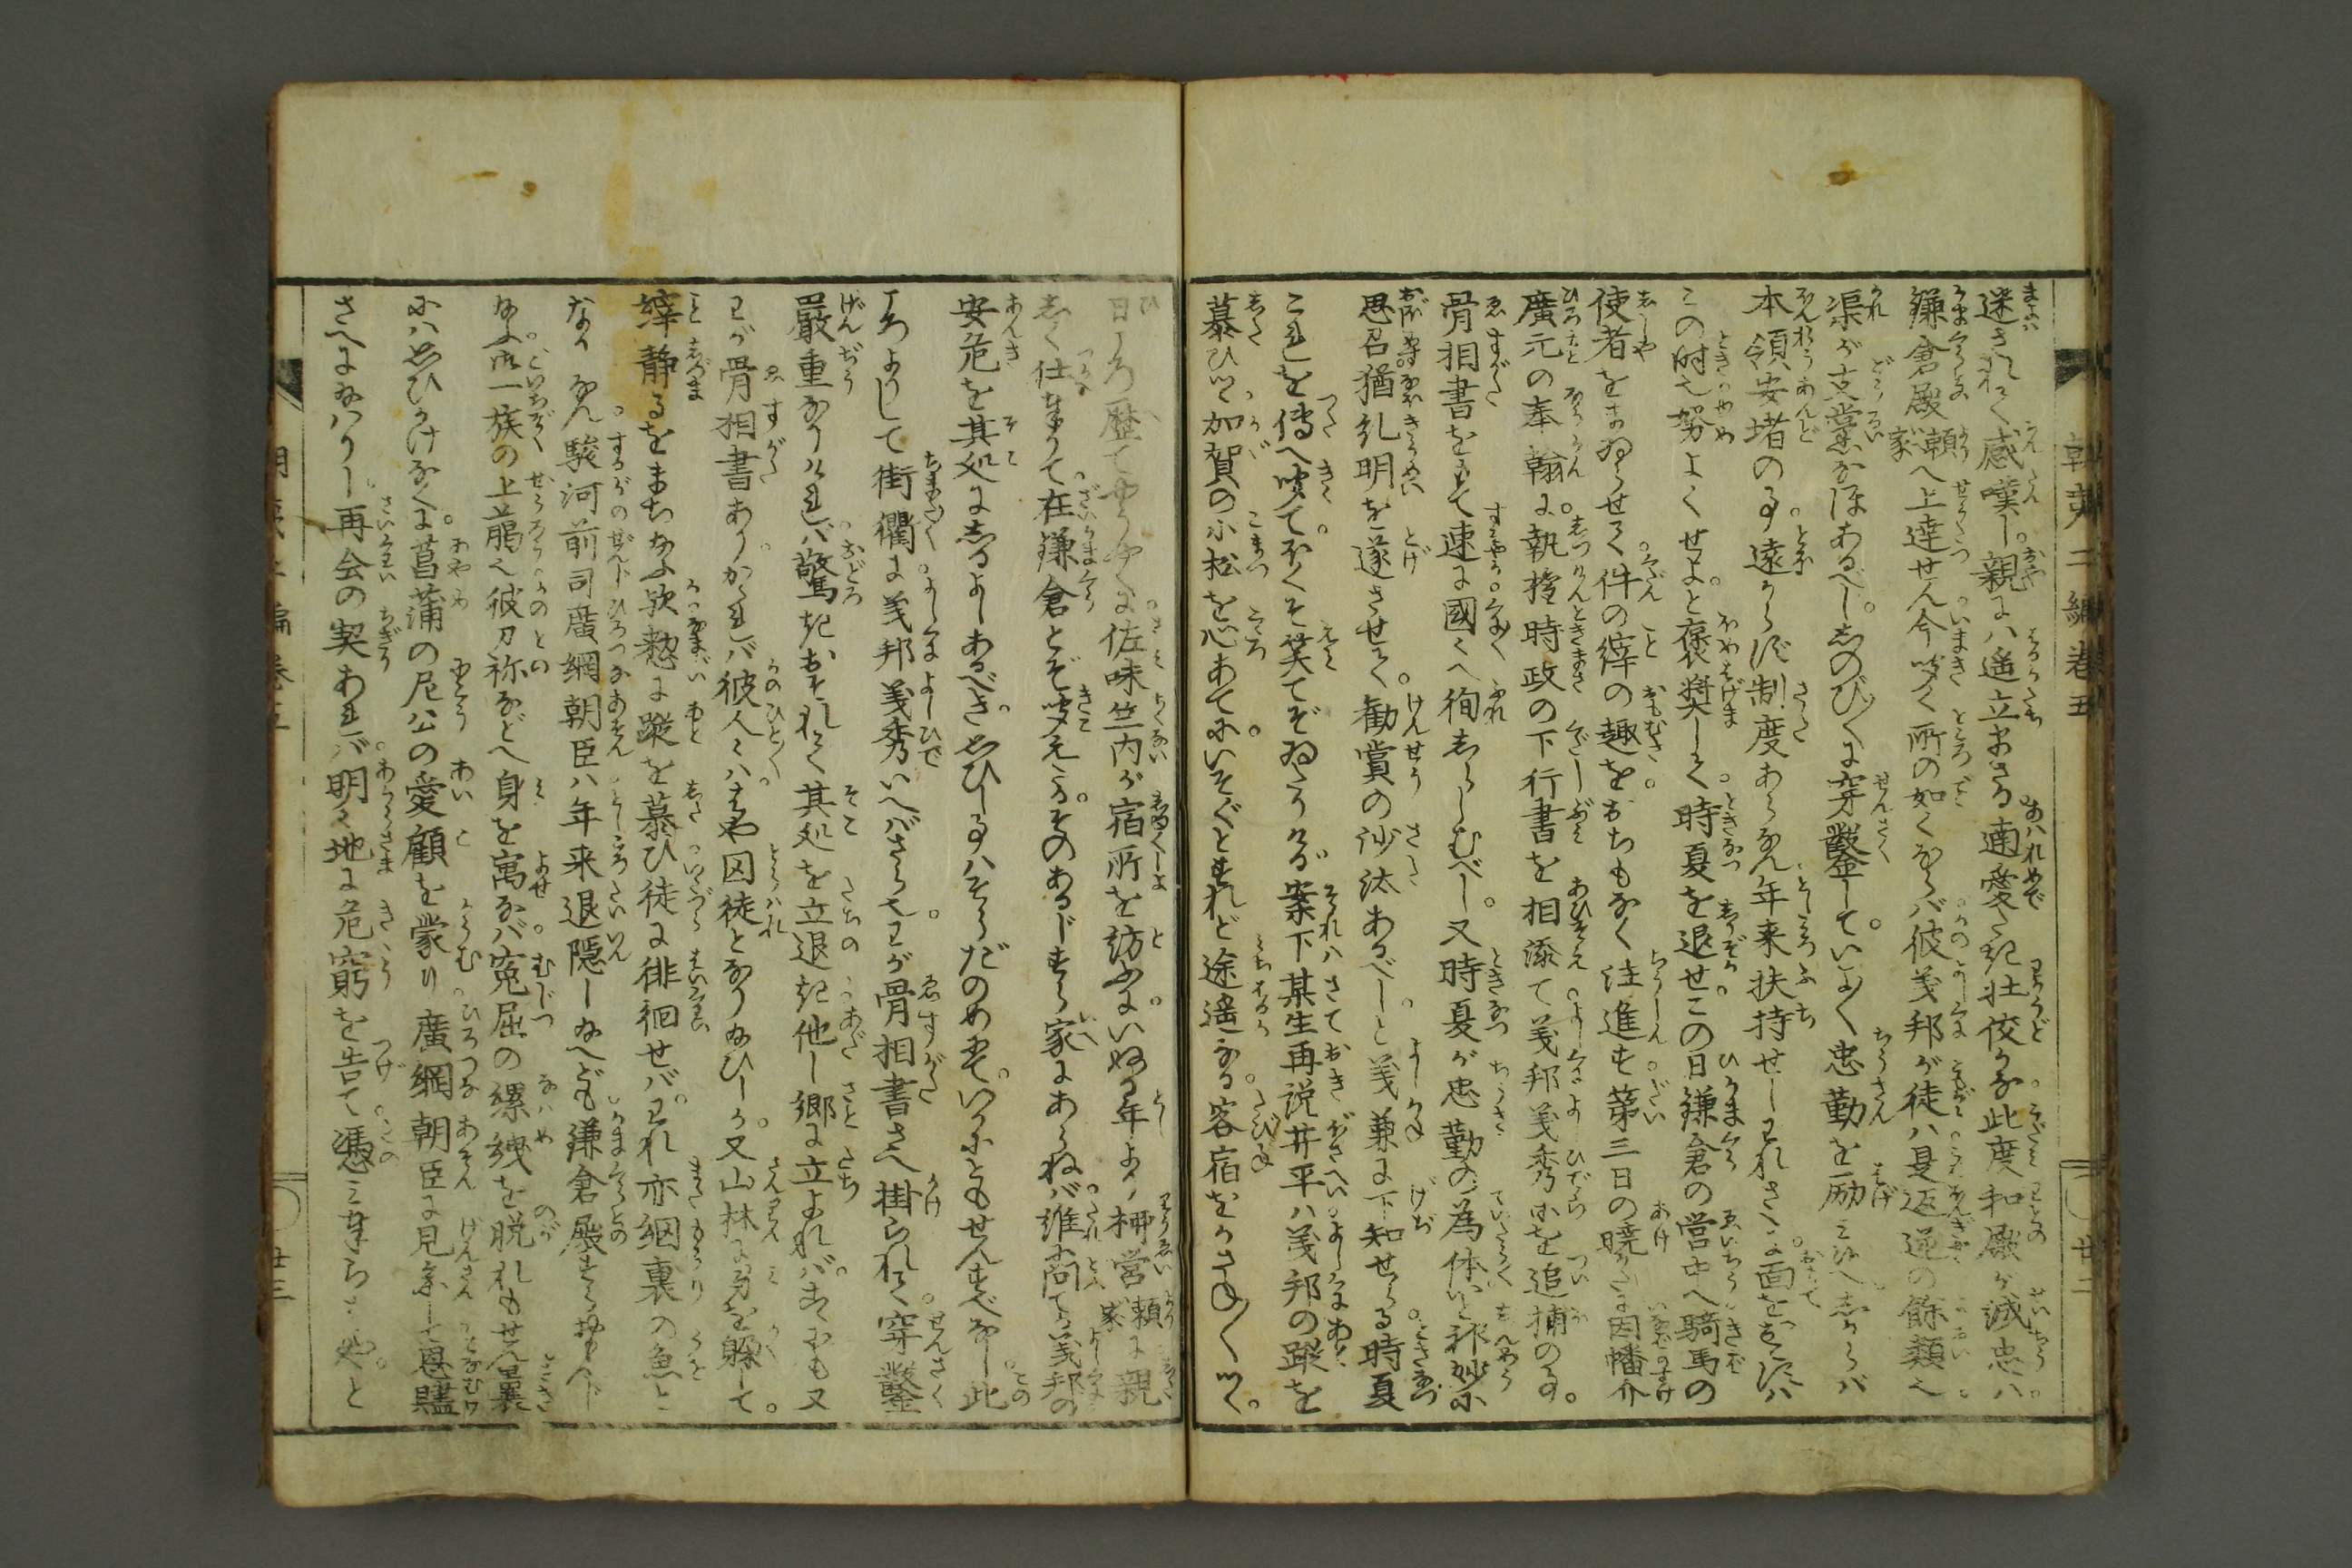 朝夷二編巻五
迷されて感嘆し親には遥立まさる適愛たき壮佼かな此度和殿が誠忠ハ
鎌倉殿頼家へ上達せん今聞く所の如くならバ彼義邦が徒ハ是返逆の餘類也
渠が支黨なほあるべししのび〳〵に穿鑿していよ〳〵忠勤を励み給へしからバ
本領安堵の事遠からず制度あらなん年来扶持せしわれさへに面をおこすハ
この時也努よくせよと褒奨して時夏を退せこの日鎌倉の営中へ騎馬の
使者をまゐらせて件の縡の趣をおちもなく注進す第三日の暁かたに因幡介
廣元の奉翰に執権時政の下行書を相添て義邦義秀ホを追捕の事
骨相書をもて速に國々へ徇しらしむべし又時夏が忠勤の為体いと神妙に
思召猶糺明を遂させて勧賞の沙汰あるべしと義兼に下知せらる時夏
これを傳へ聞てほくそ笑てぞゐたりける案下某生再説井平ハ義邦の蹤を
慕ひつゝ加賀の小松を心あてにいそぐとすれど途遥なる客宿をかさね〳〵つゝ
廿二
日ころ歴てやうやくに佐味竺内が宿所を訪ふにいぬる年より柳営頼家に親
しく仕まつりて在鎌倉とぞ聞えけるそのあるじすら家にあらねバ誰に問て義邦の
安危を其処にしるよしあるべき思ひし事ハそらだのめにていかにともせんすべなし此
ころよりして街衢に義邦義秀いへバさら也わが骨相書さへ掛られて穿鑿
嚴重なりけれバ驚きおそれて其処を立退き他し郷に立よれバこゝにも又
わが骨相書ありかゝれバ彼人々ハはや囚徒となり給ひしか又山林に身を躱して
縡静るをまち給ふ歟憖に蹤を慕ひ徒に徘徊せバわれ亦網裏の魚と
ならなん駿河前司廣綱朝臣ハ年来退隠し給へども鎌倉殿すら
給ふ御一族の上﨟也彼刀祢などへ身を寓なバ寃屈の縲絏を脱れもせん曩
にハ思ひかけなくに菖蒲の尼公の愛顧を蒙り廣綱朝臣に見参して恩贐
さへに給ハりし再会の契あれバ明々地に危窮を告て憑み奉らばやと
朝夷二編巻五
廿三